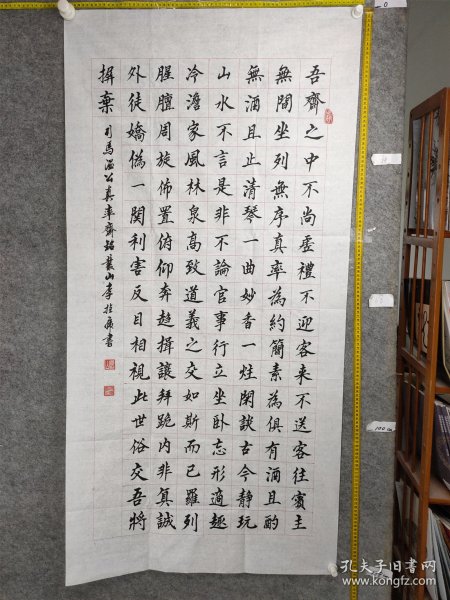 吾齋之中不尚虛禮不迎客来不送客往賓主
無間坐列無序真率為約簡素為俱有酒且酌
無酒且止清琴一曲妙香一炷閑談古今靜玩
山水不言是非不論官事行立坐卧忘形適趣
冷澹家風林泉高致道義之交如斯而已羅列
腥膻周旋佈置俯仰奔趨揖讓拜跪内非真誠
外徒嬌偽一関利害反目相視此世俗交吾將
摒棄
司馬溫公真率齋銘 山李桂書
孔夫子旧书网
www.kongfz.com